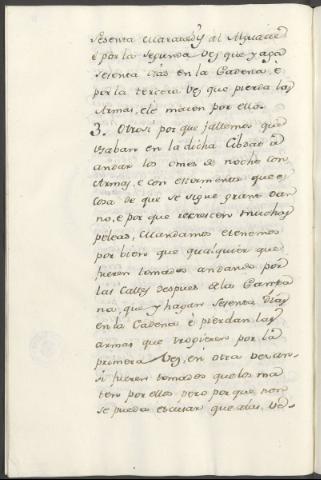 sesenta maravedys al Alguacil
é por la segunda vez que yaga
sesenta dias en la Cadena, é
por la tercera vez que pierda las
Armas, ele maten por ello.
3. Otrosi por que fallemos que
usaban en la dicha Cibdat á
andar los omes de noche con
Armas, é con estormentos que es
cosa de que se sigue grant dan
no, é por que recrescen muchas
peleas, Mandamos etenemos
por bien que qualquier que
fueren tomados andando por
las Calles despues de la Campa
na, que y hagan sesenta dias
en la Cadena é pierdan las
armas que trogieren por la
primera vez, en otra vez an-
si fueren tomados quelos ma
ten por ello, pero por que non
se pueda escusar que alas ve-